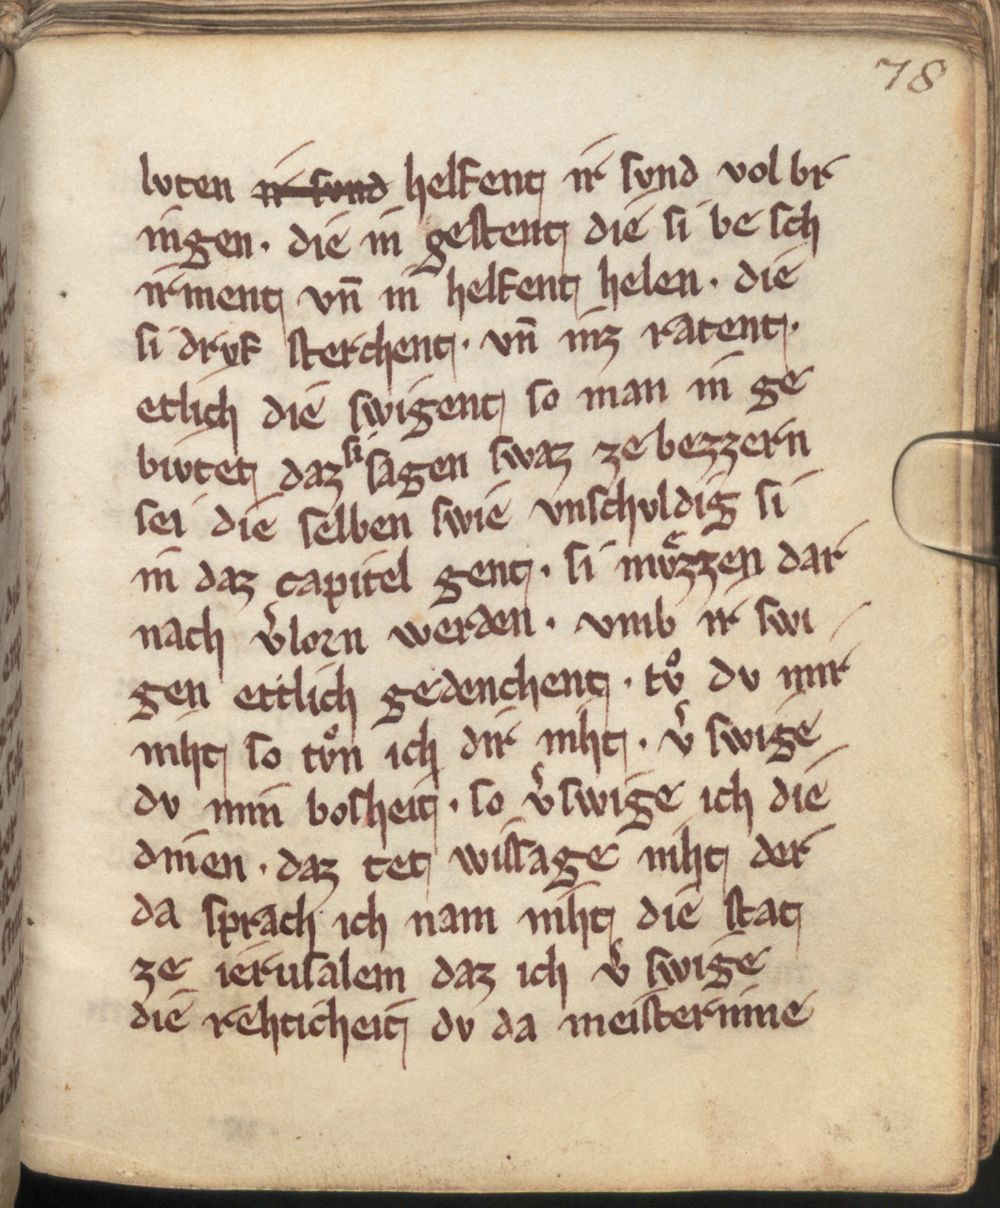 78
lvten ir svnd helfent ir svnd vol br
ingen · die in gestent die si be sch
irment vn̄ in helfent helen · die
si drvf sterchent · vn̄ inz ratent ·
etlich die swigent so man in ge
bivtet daz si sagen swaz ze bezzern
sei die selben swie vnschvldig si
in daz capitel gent · si mvͤzzen dar
nach v̓lorn werden · vmb ir swi
gen ettlich gedenchent · tvͦ dv mir
niht so tvͦn ich dir niht · v̓ swige
dv min bosheit · so v̓swige ich die
dinen · daz tet wissage niht der
da sprach ich nam niht die stat
ze ierusalem daz ich v̓ swige
die rehticheit dv da meisterinne